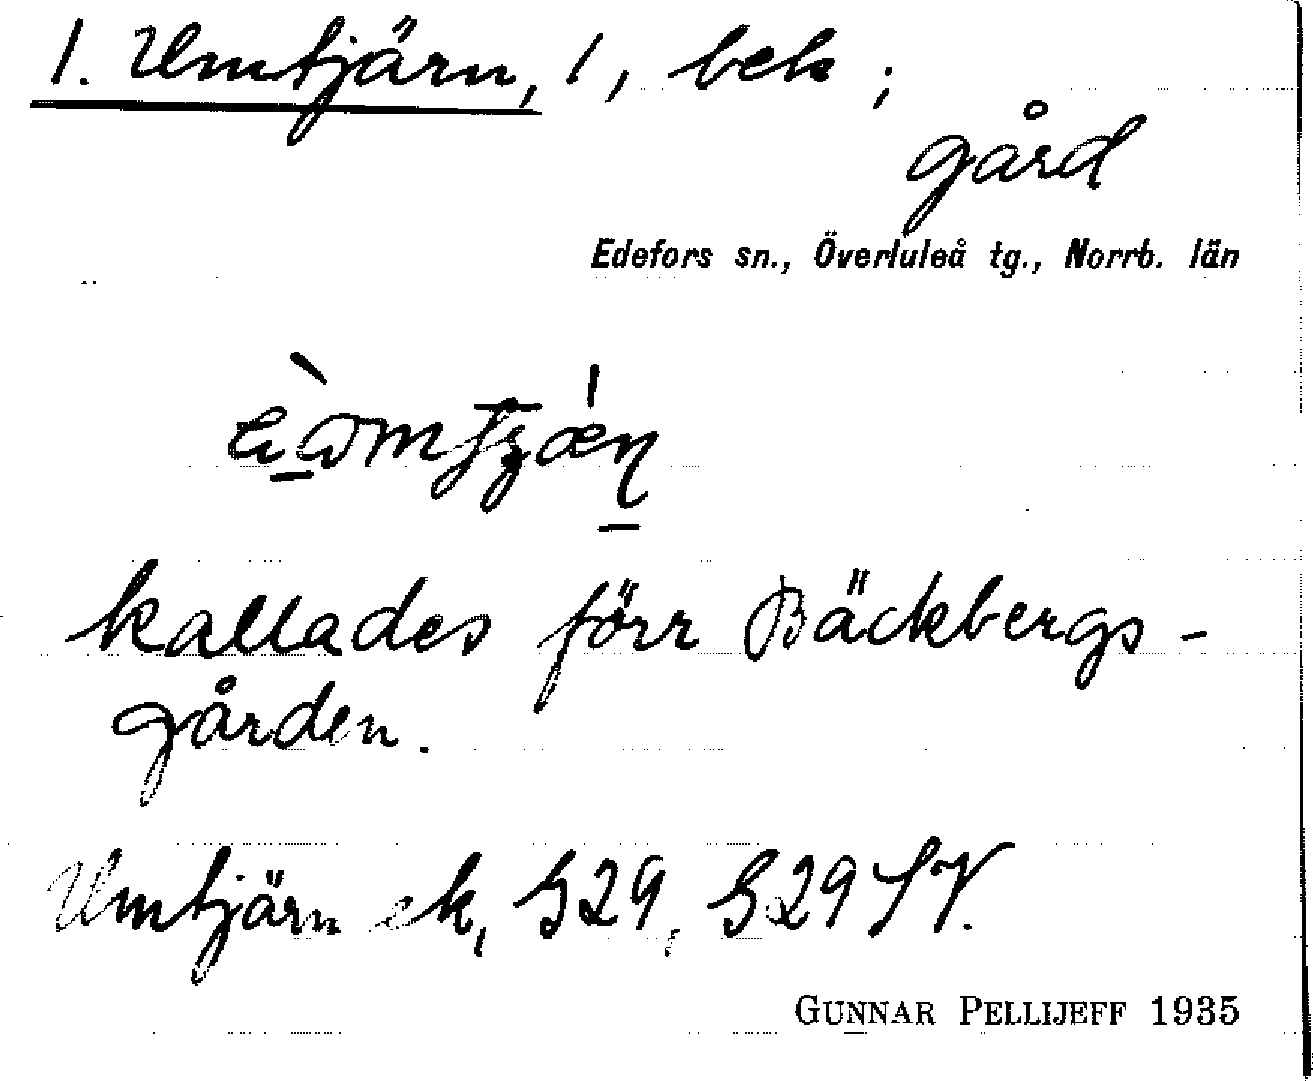 1. Umtjärn, 1, bek ;
gård
Edefors sn., Överluleå tg., Norrb. län
kallades förr Bäckbergs-
gården.
Umtjärn ek, G29, G29SV.
GUNNAR PELLIJEFF 1935